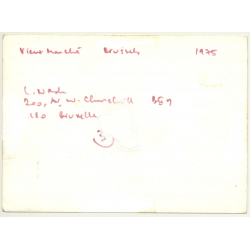 Vieux Marché Brussels 1975
L. Wade
200, Av. W. Churchill B59
180 Bruxelle
3